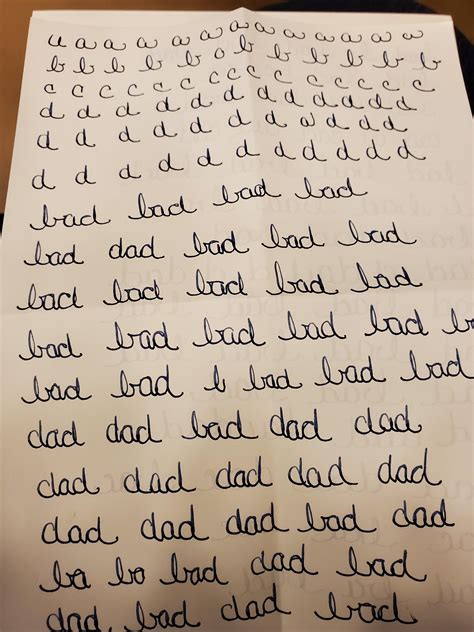 a a a a a a a a a a a a a
b b b b b o b b b b b b
c c c c c c c c c c c c c c
d d d d d d d d d d d d
d d d d d d d d d d d
d d d d d d d d d d
bad bad bad bad
bad dad bad bad bad
bad bad bad bad bad
bad bad bad bad bad b
bad bad b bad bad bad
dad dad bad dad dad
dad dad dad dad dad
dad dad dad bad dad
ba bo bad dad bad
dad bad dad bad